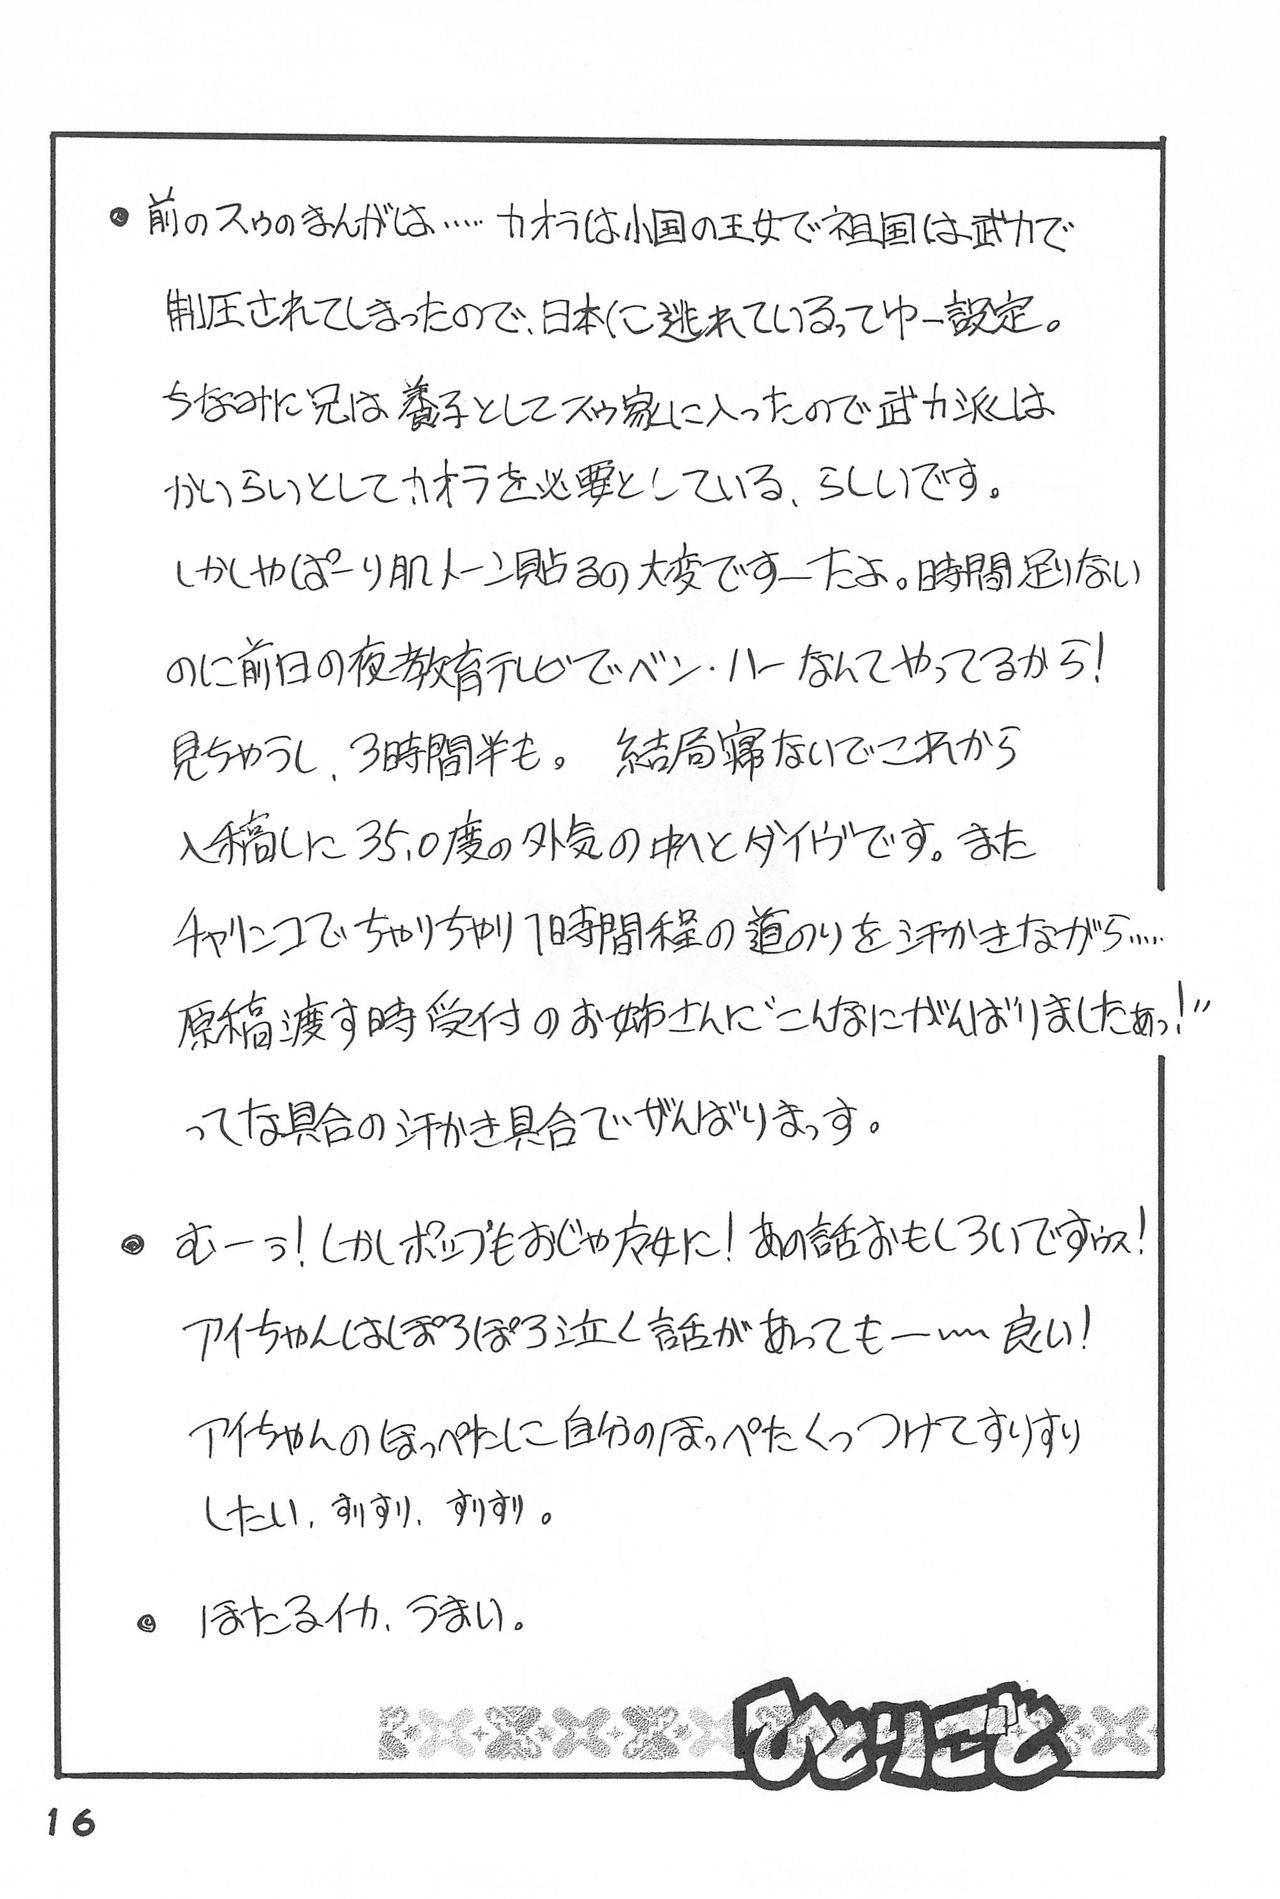 前のスゥのまんがは…… カオラは小国の王女で祖国は武力で
制圧されてしまったので、日本に逃れているってゆー設定。
ちなみに兄は養子としてスゥ家に入ったので武力派は
かいらいとしてカオラを必要としている、らしいです。
しかしやぱーり肌トーン貼るの大変ですーたよ。時間足りない
のに前日の夜教育テレビでベン・ハーなんてやってるから!
見ちゃうし、3時間半も。 結局寝ないでこれから
入稿しに35.0度の外気の中へとダイヴです。また
チャリンコでちゃりちゃり1時間程の道のりを汗かきながら……
原稿渡す時受付のお姉さんに“こんなにがんばりましたぁっ!”
ってな具合の汗かき具合でがんばりまっす。
むーっ!しかしポップもおじゃ魔女に!あの話おもしろいですぅス!
アイちゃんはぽろぽろ泣く話があってもー〰良い!
アイちゃんのほっぺたに自分のほっぺたくっつけてすりすり
したい、すりすり、すりすり。
ほたるイカ、うまい。
ひとりごと
16